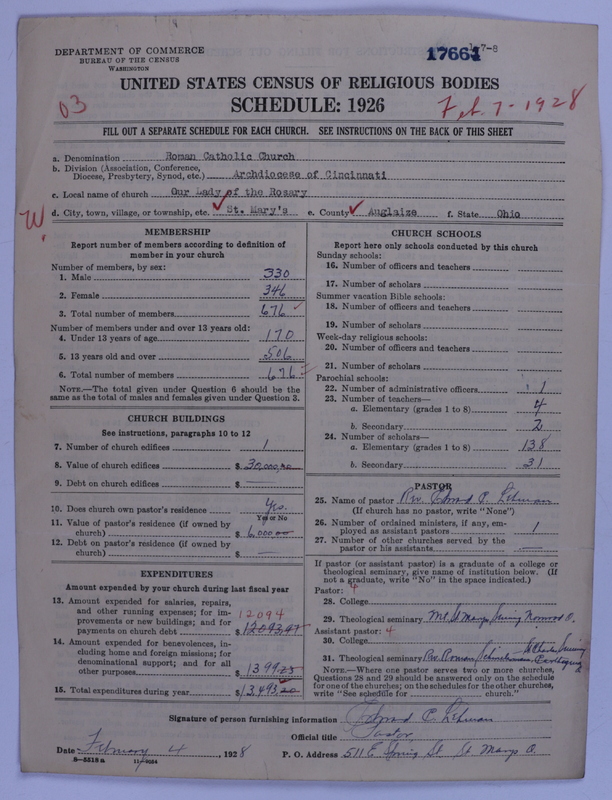 DEPARTMENT OF COMMERCE
BUREAU OF THE CENSUS
WASHINGTON
17661
1-7-8
UNITED STATES CENSUS OF RELIGIOUS BODIES
SCHEDULE: 1926
03
Feb. 7-1928
FILL OUT A SEPARATE SCHEDULE FOR EACH CHURCH. SEE INSTRUCTIONS ON THE BACK OF THIS SHEET
a. Denomination Roman Catholic Church
b. Division (Association, Conference, Diocese, Presbytery, Synod, etc.) Archdiocese of Cincinnati
c. Local name of church Our Lady of the Rosary
d. City, town, village, or township, etc. St. Mary's e. County Auglaize f. State Ohio
W.
MEMBERSHIP
Report number of members according to definition of
member in your church
Number of members, by sex:
1. Male 330
2. Female 346
3. Total number of members 676
Number of members under and over 13 years old:
4. Under 13 years of age 170
5. 13 years old and over 506
6. Total number of members 676
NOTE.—The total given under Question 6 should be the
same as the total of males and females given under Question 3.
CHURCH BUILDINGS
See instructions, paragraphs 10 to 12
7. Number of church edifices 1
8. Value of church edifices $ 30,000.00
9. Debt on church edifices $ —
10. Does church own pastor's residence? Yes.
Yes or No
11. Value of pastor's residence (if owned by
church) $ 6,000.00
12. Debt on pastor's residence (if owned by
church) $ —
EXPENDITURES
Amount expended by your church during last fiscal year
13. Amount expended for salaries, repairs,
and other running expenses; for im-
provements or new buildings; and for 12094
payments on church debt $ 12093.97
14. Amount expended for benevolences, in-
cluding home and foreign missions; for
denominational support; and for all
other purposes $ 1399.23
15. Total expenditures during year $ 13,493.20
CHURCH SCHOOLS
Report here only schools conducted by this church
Sunday schools:
16. Number of officers and teachers
17. Number of scholars
Summer vacation Bible schools:
18. Number of officers and teachers
19. Number of scholars
Week-day religious schools:
20. Number of officers and teachers
21. Number of scholars
Parochial schools:
22. Number of administrative officers 1
23. Number of teachers—
a. Elementary (grades 1 to 8) 4
b. Secondary 2
24. Number of scholars—
a. Elementary (grades 1 to 8) 138
b. Secondary 31
PASTOR
25. Name of pastor Rev. Edward C. Lehman
(If church has no pastor, write "None")
26. Number of ordained ministers, if any, em-
ployed as assistant pastors 1
27. Number of other churches served by the
pastor or his assistants —
If pastor (or assistant pastor) is a graduate of a college or
theological seminary, give name of institution below. (If
not a graduate, write "No" in the space indicated.)
Pastor: 4
28. College
29. Theological seminary Mt. St. Marys Norwood O.
Assistant pastor: 4
30. College St Charles
31. Theological seminary Rev. Roman Carthagena
NOTE.—Where one pastor serves two or more churches,
Questions 28 and 29 should be answered only on the schedule
for one of the churches; on the schedules for the other churches,
write "See schedule for church."
Signature of person furnishing information Edward C. Lehman
Official title Pastor
Date February 4, 1928 P. O. Address 511 E Spring St. St Marys O.
8—5518 a 11—9054